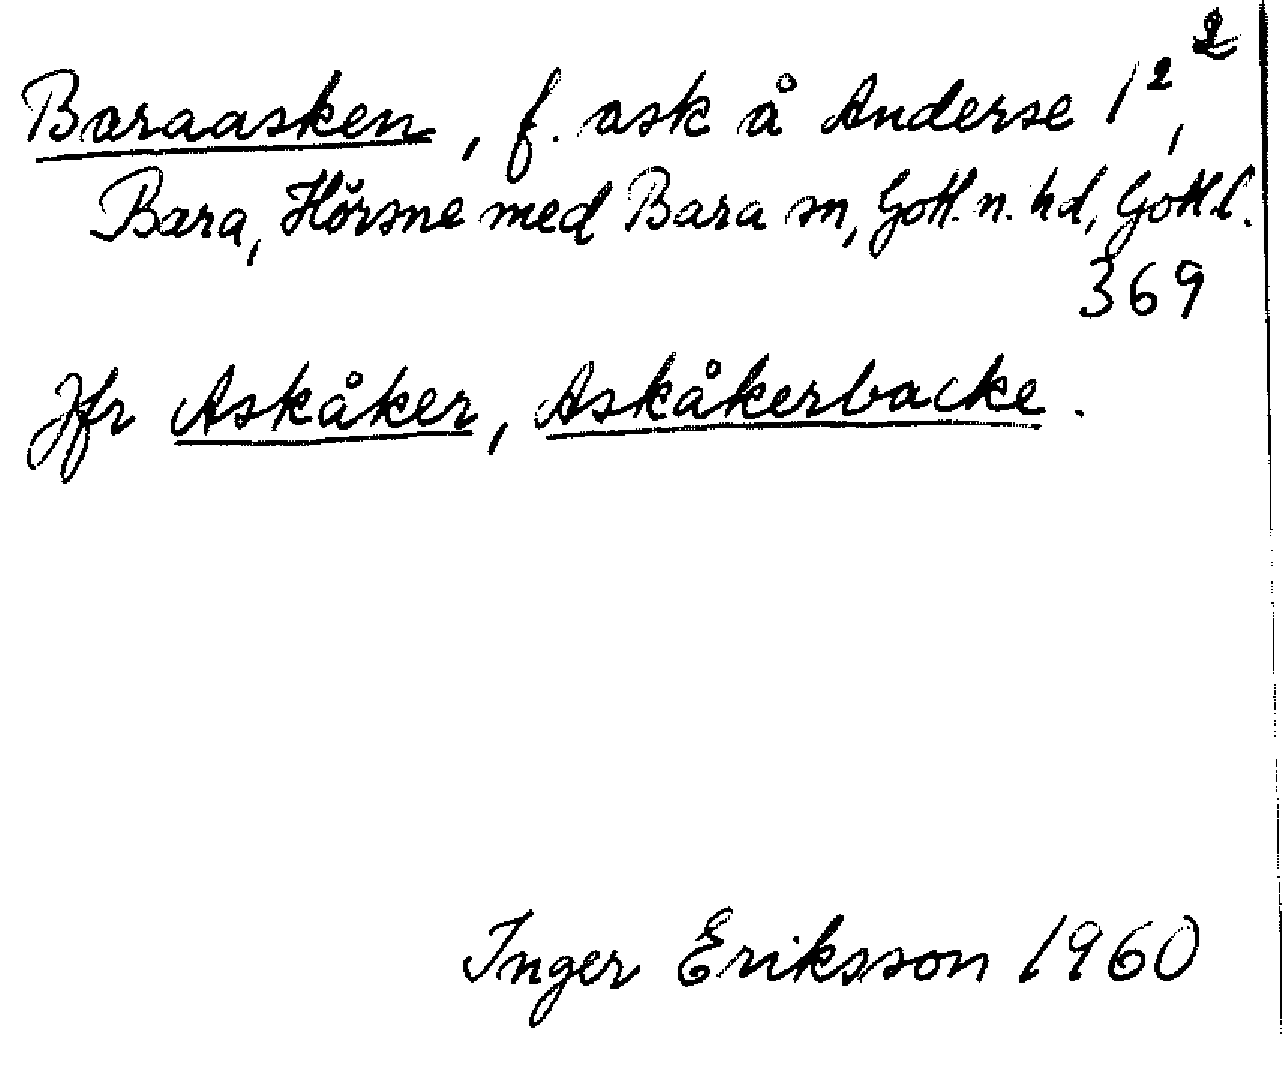 2
Baraasken, f. ask å Anderse 1²,
Bara, Hörsne med Bara sn, Gotl. n. hd, Gotl. l.
369
Jfr Askåker, Askåkerbacke.
Inger Eriksson 1960